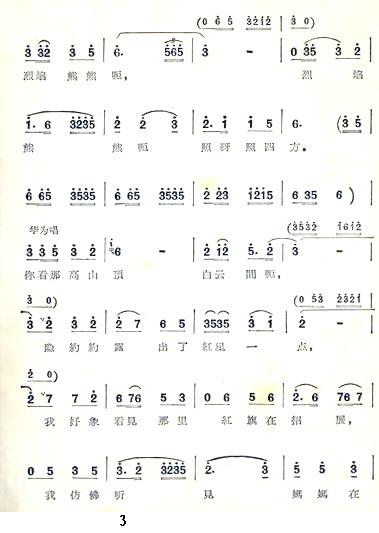 (0 6 5 3 2 1 2 | 3 0)
3 32 3 5 | 6. 565 | 3 - | 0 35 3 2 |
烈焰 熊熊 呃, 烈 焰
1. 6 3235 | 2 2 3 | 2. 1 1 5 | 6. (3 5 |
熊 熊 呃 照呀照四方。
6 65 3535 | 6 65 3535 | 2 23 1215 | 6 35 6 ) |
华为唱
(3532 1612
3 3 5 3 2 | 6 - | 2 12 5. 2 | 3 - |
你看那高山頂 白云間呃,
3 0) (0 53 2321
3 2 3 2 | 2 7 6 5 | 3535 3 1 | 2 - |
隐約約露 出了紅星一点,
2 0)
2 7 7 2 | 6 76 5 3 | 0 6 5 6 | 2. 6 76 7 |
我好象看見 那里 紅旗在招 展,
0 5 3 5 | 3. 2 3235 | 2. 3 | 5 5 3 |
我仿佛听 見 媽媽在
3